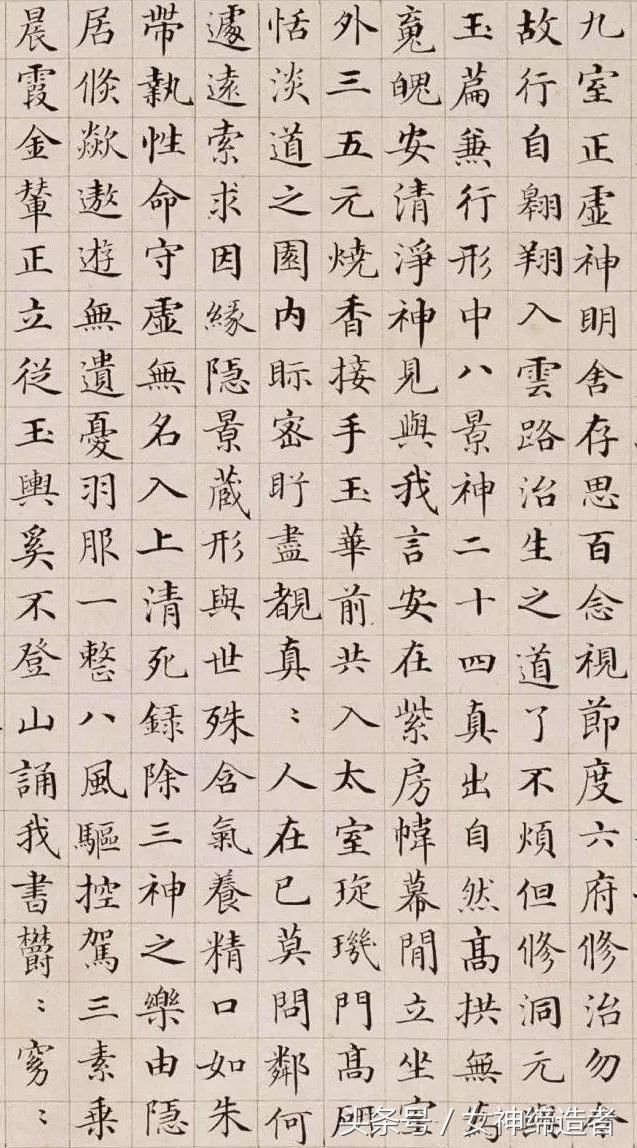 九室正虛神明舍存思百念視節度六府修治勿
故行自翱翔入雲路治生之道了不煩但修洞元
玉篇兼行形中八景神二十四真出自然高拱無
䰟魄安清淨神見與我言安在紫房幃幕閒立坐
外三五元燒香接手玉華前共入太室琁璣門高研
恬淡道之園內眎密盻盡覩真〻人在已莫問鄰何
遽遠索求因緣隱景藏形與世殊含氣養精口如朱
帶執性命守虛無名入上清死錄除三神之樂由隱
居倏欻遨遊無遺憂羽服一整八風驅控駕三素乘
晨霞金輦正立從玉輿奚不登山誦我書欝〻窈〻
头条号 / 女神缔造者